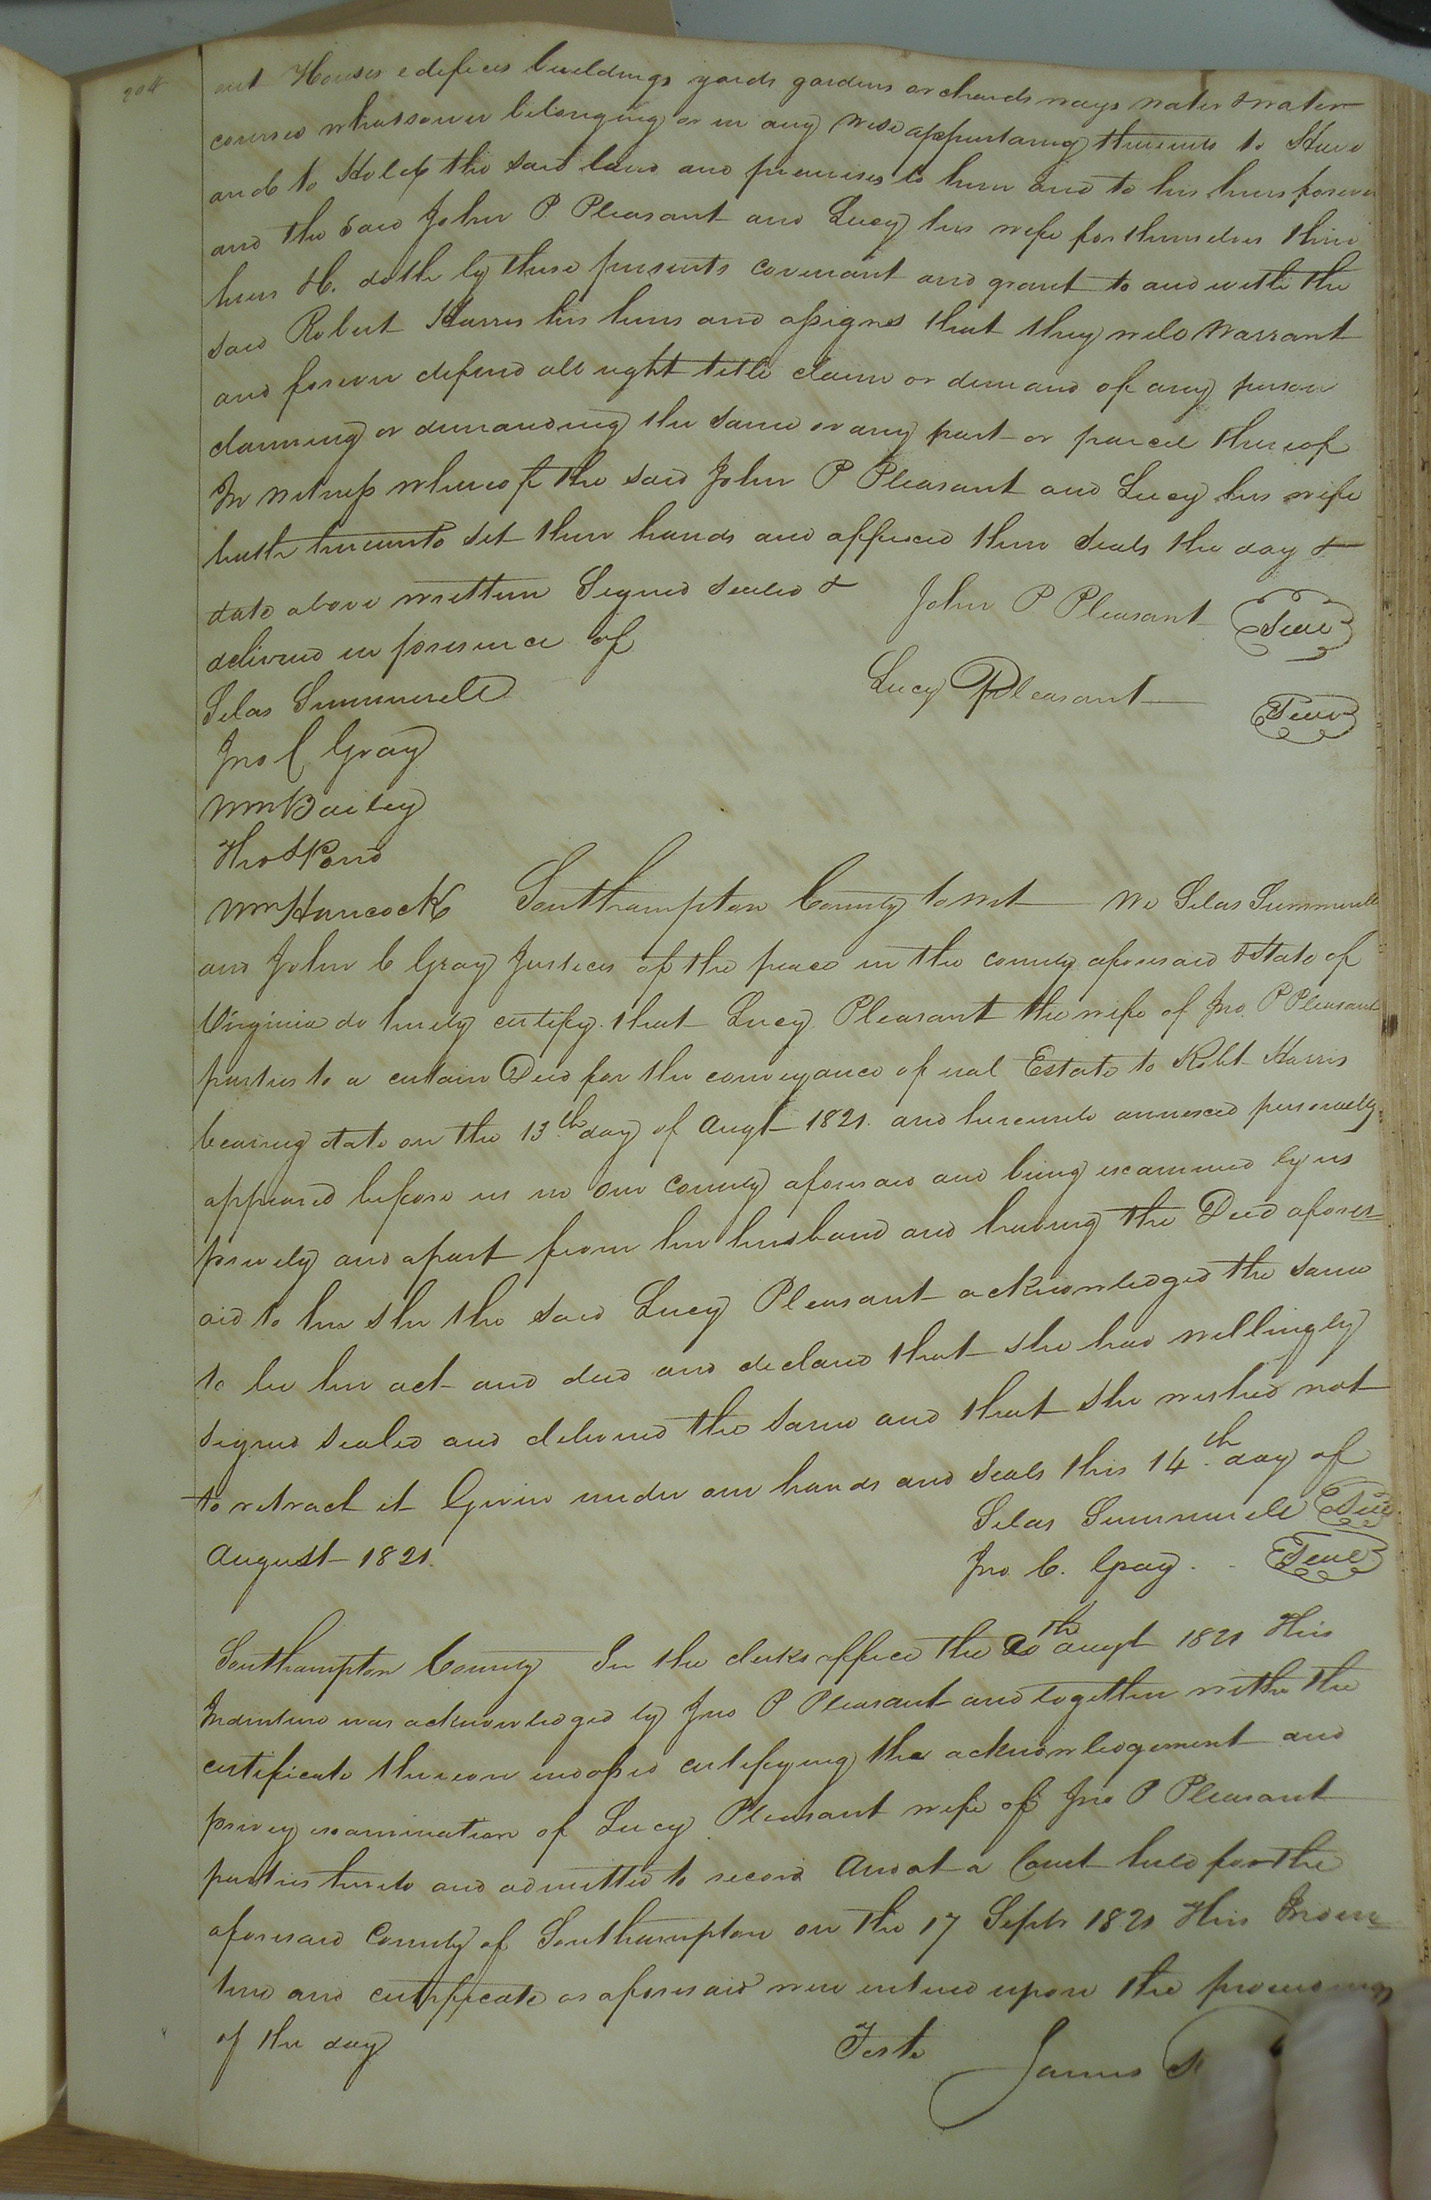 204
out Houses edifices buildings yards gardens orchards ways water & water
courses whatsoever belonging or in any wise appertaining thereunto to Have
and to Hold the said land and premises to him and to his heirs forever
and the said John P Pleasant and Lucy his wife for themselves their
heirs &c. doth by these presents covenant and grant to and with the
said Robert Harris his heirs and assigns that they will warrant
and forever defend all right title claim or demand of any person
claiming or demanding the same or any part or parcel thereof
In witness whereof the said John P Pleasant and Lucy his wife
hath hereunto set their hands and affixed their seals the day &
date above written Signed sealed & John P Pleasant Seal
delivered in presence of
Lucy Pleasant Seal
Silas Summerell
Jno C Gray
Wm Bailey
Wm Hancock Southampton County to wit We Silas Summerell
and John C Gray Justices of the peace in the county aforesaid & State of
Virginia do hereby certify that Lucy Pleasant the wife of Jno P Pleasant
parties to a certain Deed for the conveyance of real Estate to Robt Harris
bearing date on the 13th day of Augt 1821. and hereunto annexed personally
appeared before us in our county aforesaid and being examined by us
privily and apart from her husband and having the Deed afores-
aid to her she the said Lucy Pleasant acknowledged the same
to be her act and deed and declared that she had willingly
signed sealed and delivered the same and that she wished not
to retract it Given under our hands and seals this 14th day of
August 1821.
Silas Summerell Seal
Jno C. Gray. Seal
Southampton County In the clerks office the augt 1821 This
Indenture was acknowledged by Jno P Pleasant and together with the
certificate thereon endorsed certifying the acknowledgement and
privy examination of Lucy Pleasant wife of Jno P Pleasant
parties thereto and admitted to record And at a Court held for the
aforesaid County of Southampton on the 17 Septr 1821 This Inden
ture and certificate as aforesaid were entered upon the proceedings
of the day Teste James